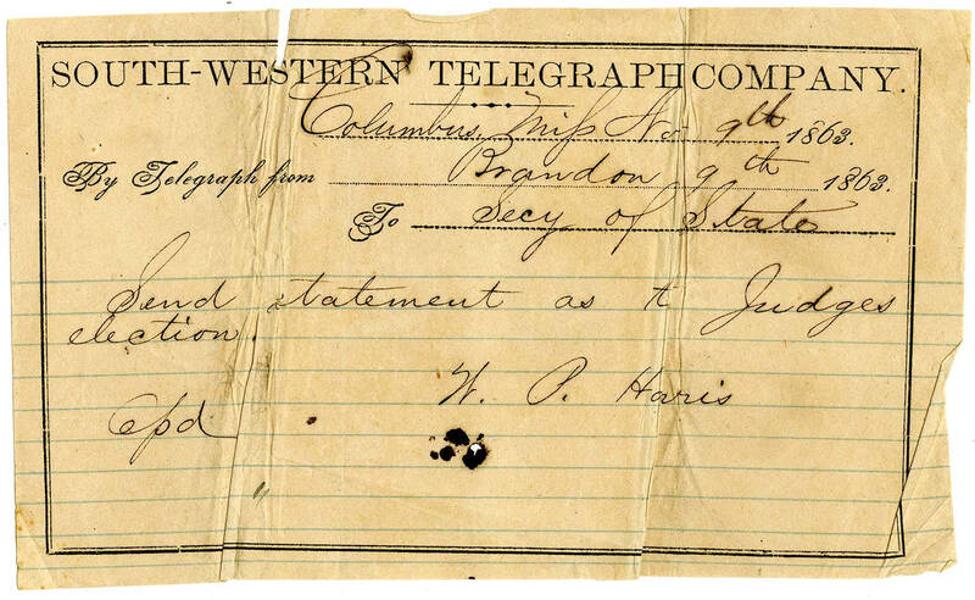 SOUTH-WESTERN TELEGRAPH COMPANY.
Columbus, Miss Nov 9th 1863.
By Telegraph from Brandon 9th 1863.
To Secy of State
Send statement as to Judges
election.
W. P. Harris